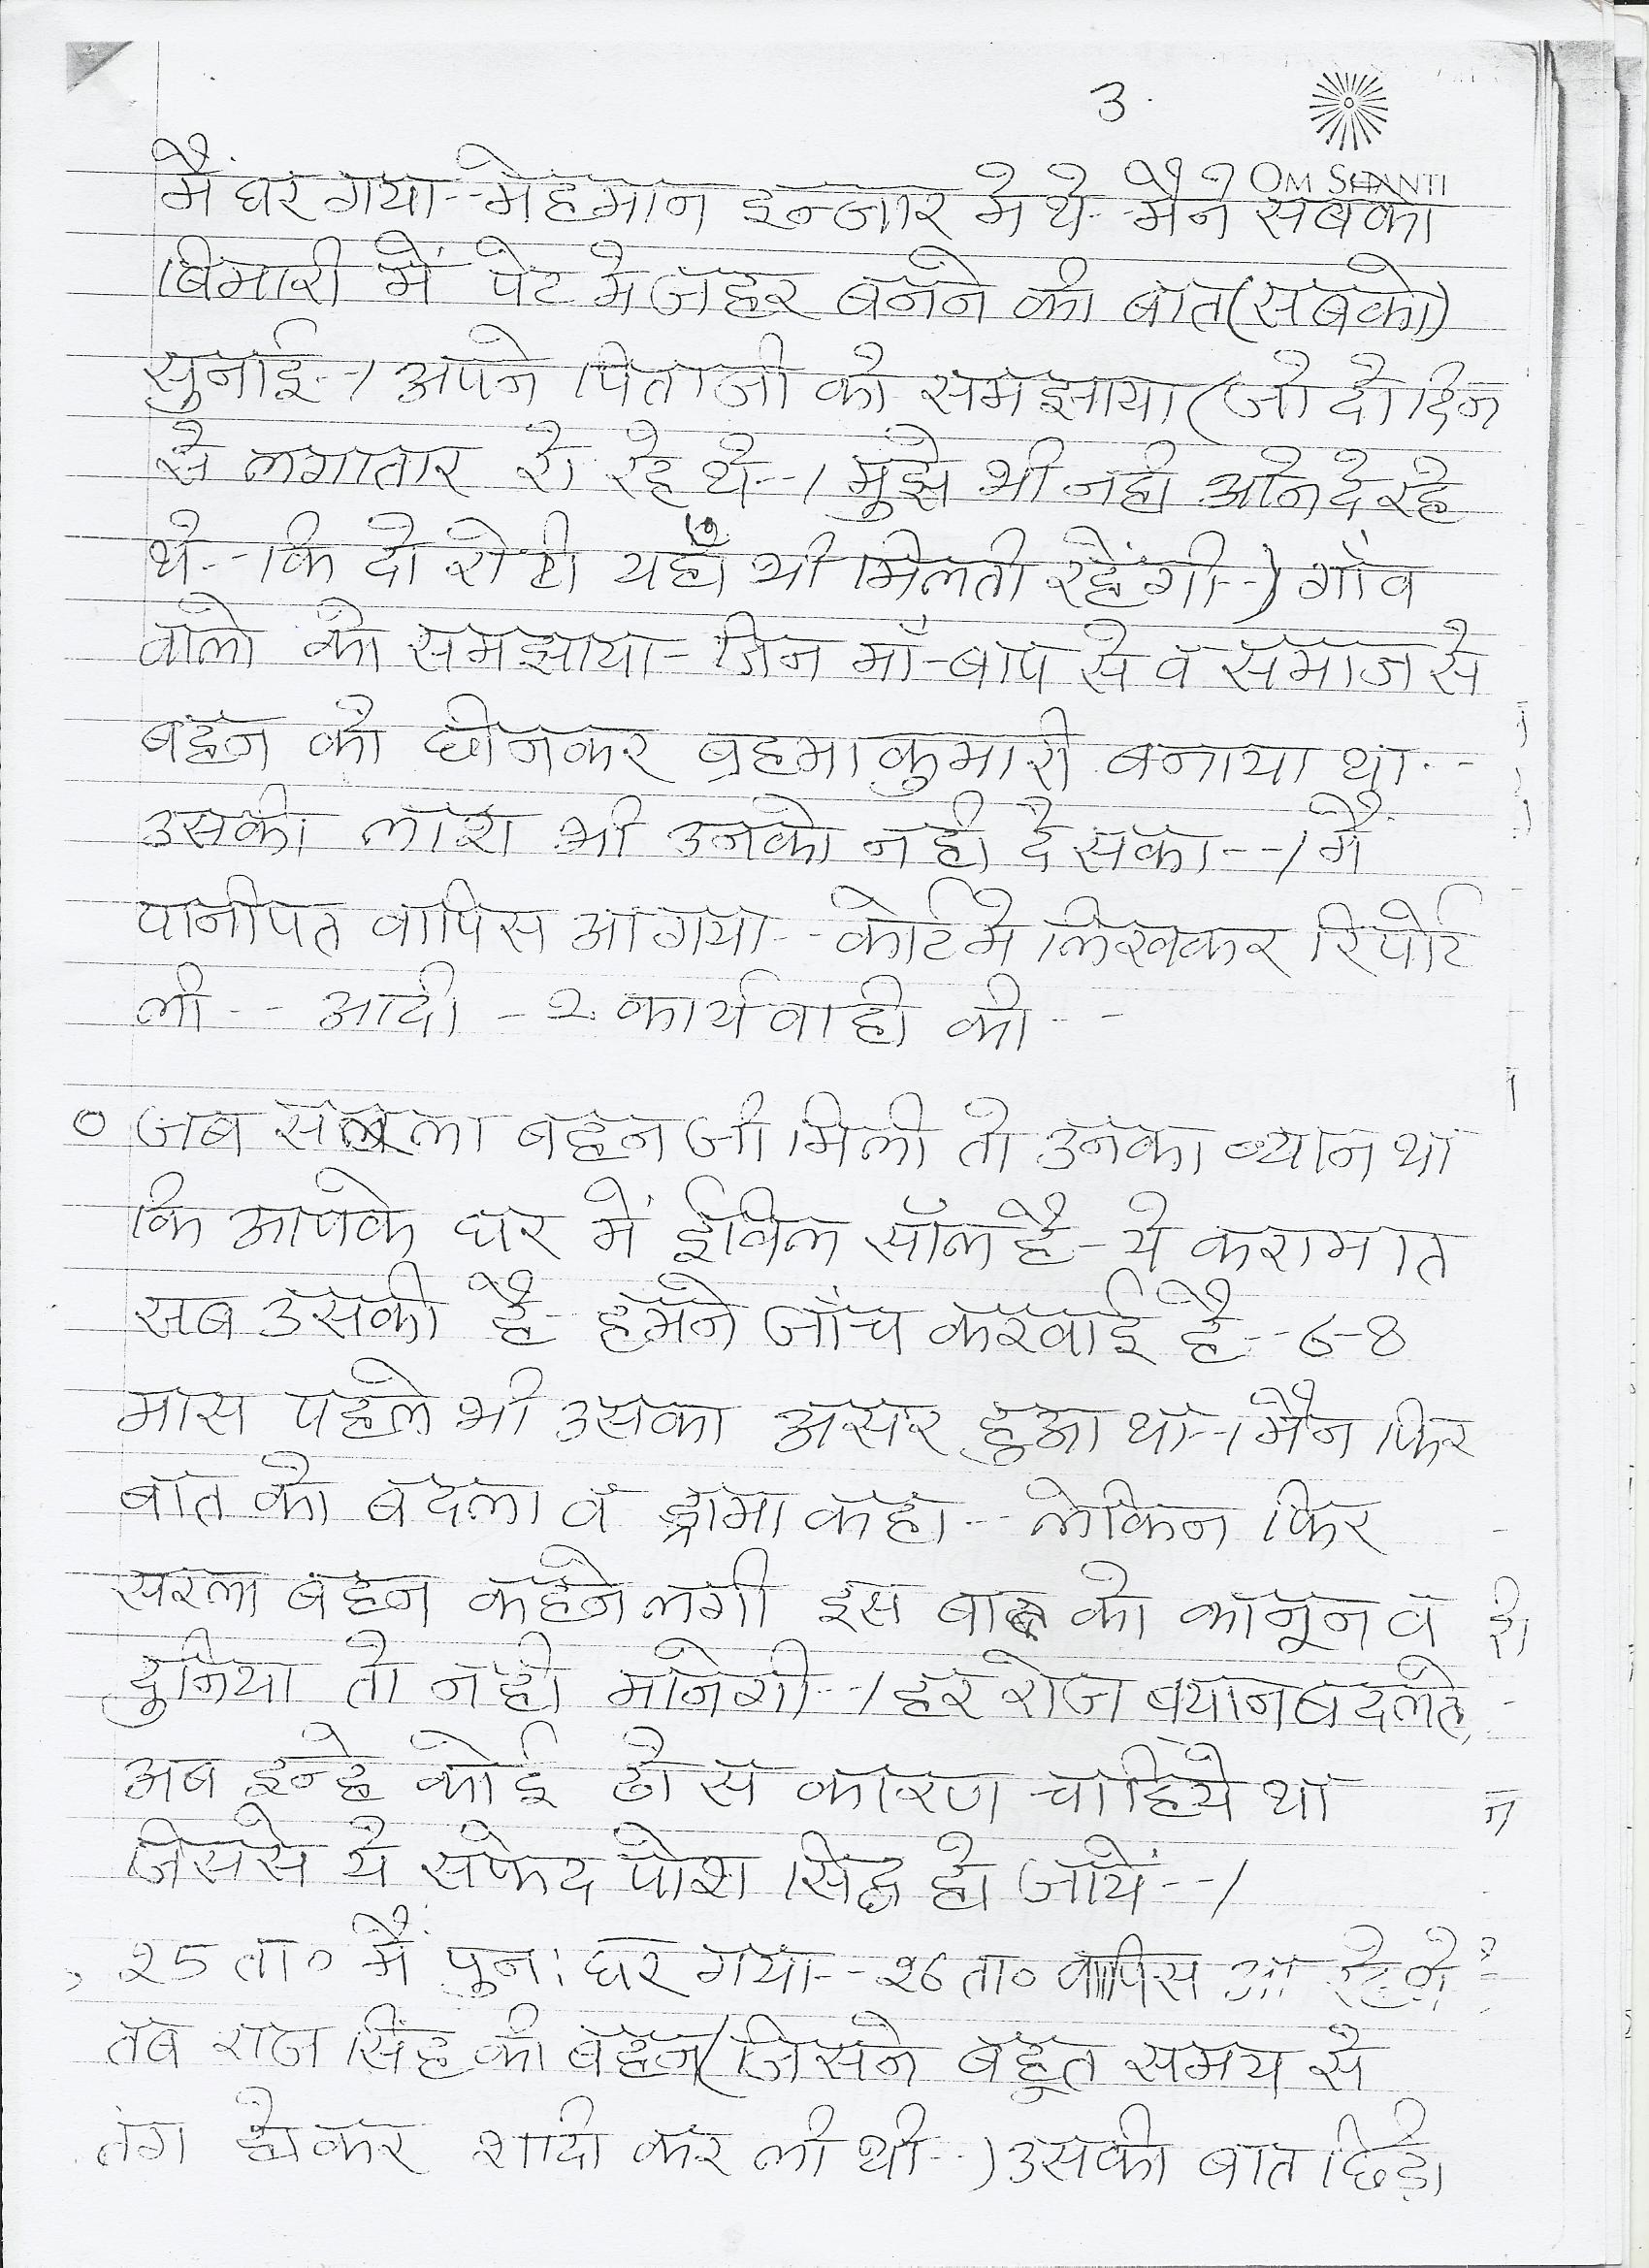 3.
OM SHANTI
मैं घर गया-- मेहमान इन्जार मे थे-- मैने सबको
बिमारी में पेट मे जहर बनने की बात (सबको)
सुनाई--। अपने पिताजी को समझाया (जो दो दिन
से लगातार रो रहे थे--। मुझे भी नही आने दे रहे
थे-- कि दो रोटी यहाँ भी मिलती रहेंगी--) गाँव
वालो को समझाया- जिन माँ-बाप से व समाज से
बहन को छीनकर ब्रहमाकुमारी बनाया था--
उसकी लाश भी उनको नही दे सका--। मैं
पानीपत वापिस आ गया-- कोर्ट मे लिखकर रिपोर्ट
ली-- आदी -२ कार्यवाही की--
० जब सरला बहन जी मिली तो उनका ब्यान था
कि आपके घर में ईविल सॉल है- ये करामात
सब उसकी है- हमने जाँच करवाई है-- 6-8
मास पहले भी उसका असर हुआ था--। मैन फिर
बात को बदला व ड्रामा कहा-- लेकिन फिर
सरला बहन कहने लगी इस बात को कानून व
दुनिया तो नही मानेगी--। हर रोज बयान बदलते,
अब इन्हे कोई ठोस कारण चाहिये था
जिससे ये सफेद पोश सिद्ध हो जायें--।
२5 ता० मैं पुन: घर गया-- २6 ता० वापिस आ
तब राज सिंह की बहन (जिसने बहुत समय से
तंग होकर शादी कर ली थी--) उसकी बात छिड़ी